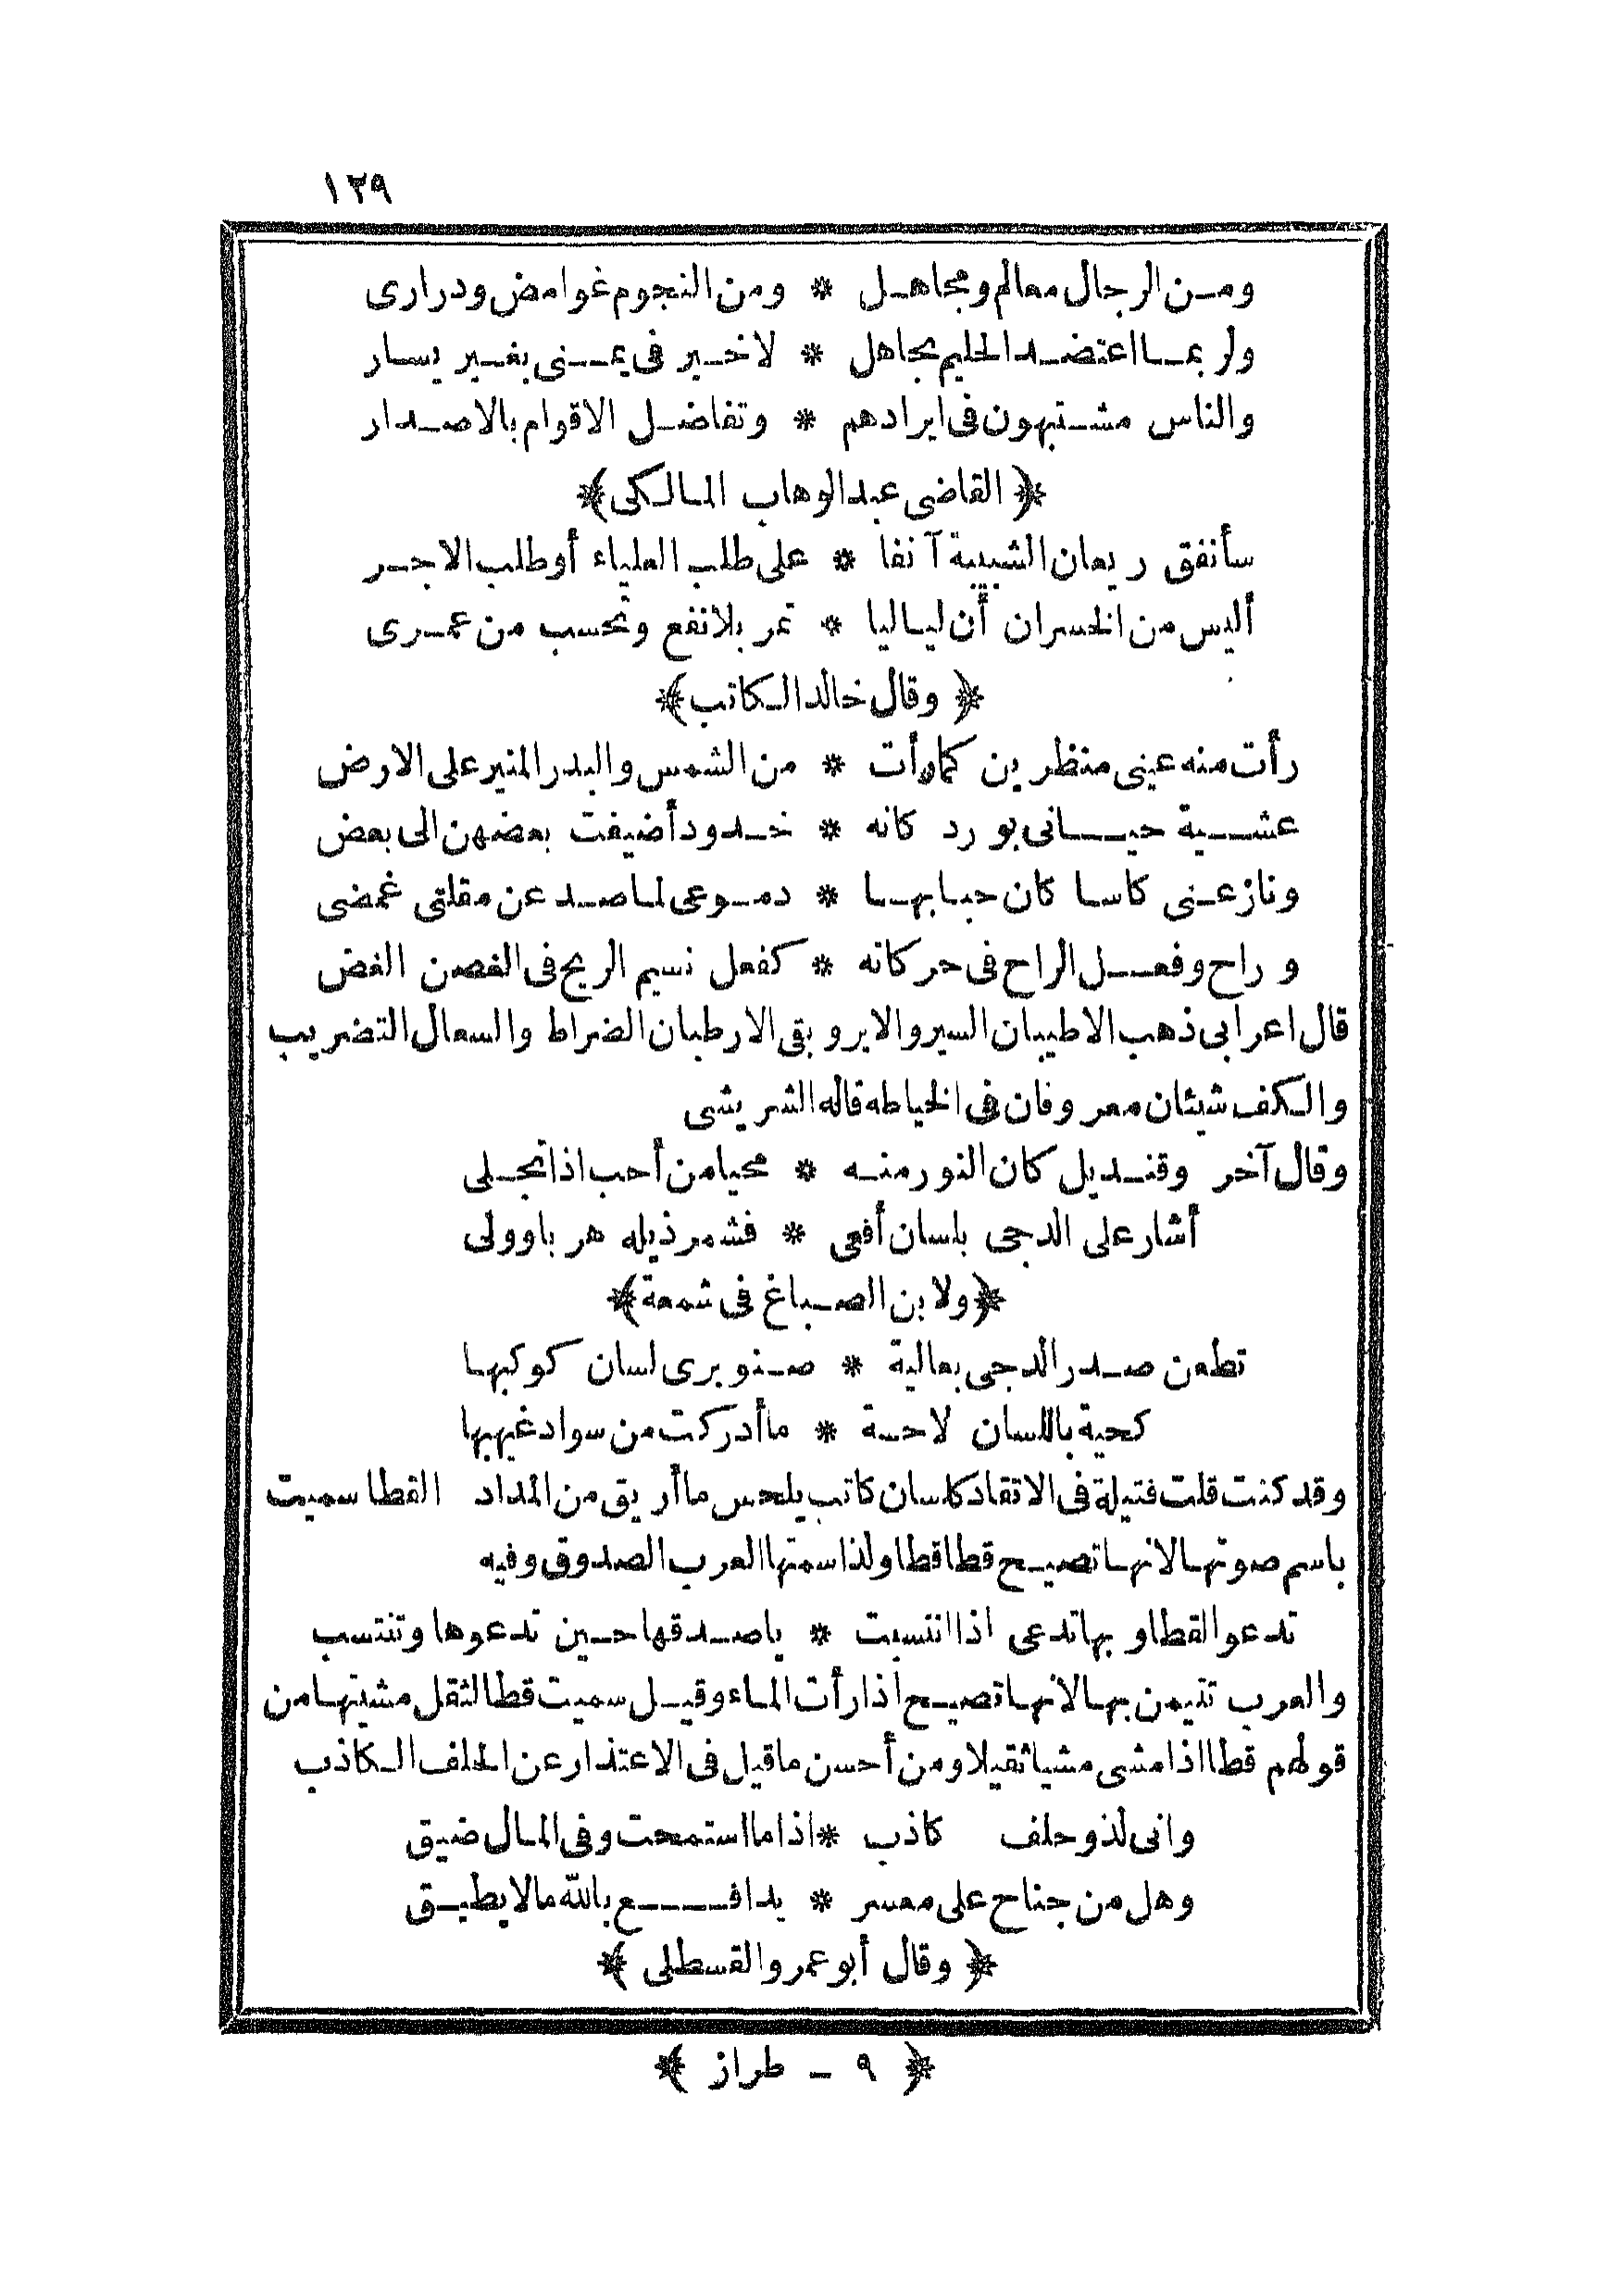 ١٢٩
ومن الرجال معالم ومجاهل * ومن النجوم غوامض ودرارى
ولربما اعتضد الحليم بجاهل * لا خير فى يمنى بغير يسار
والناس مشتبهون فى ايرادهم * وتفاضل الاقوام بالاصدار
﴿ القاضى عبد الوهاب المالكى ﴾
سأنفق ريعان الشبيبة آنفا * على طلب العلياء أو طلب الاجر
أليس من الخسران أن لياليا * تمر بلا نفع وتحسب من عمرى
﴿ وقال خالد الكاتب ﴾
رأت منه عينى منظرين كما رأت * من الشمس والبدر المنير على الارض
عشية حيانى بورد كانه * خدود أضيفت بعضهن الى بعض
ونازعنى كاسا كان حبابها * دموعى لما صد عن مقلتى غمضى
وراح وفعل الراح فى حركاته * كفعل نسيم الريح فى الغصن الغض
قال اعرابى ذهب الاطيبان السير والاير وبقى الارطبان الضراط والسعال التضريب
والكف شيئان معروفان فى الخياطه قاله الشريشى
وقال آخر وقنديل كان النور منه * محيا من أحب اذا تجلى
أشار على الدجى بلسان أفعى * فشمر ذيله هربا وولى
﴿ ولابن الصباغ فى شمعة ﴾
تطعن صدر الدجى بعالية * صنوبرى لسان كوكبها
كحية باللسان لاحسة * ما أدركت من سواد غيهبها
وقد كنت قلت فتيلة فى الاتقاد كلسان كاتب يلحس ما أريق من المداد القطا سميت
باسم صوتها لانها تصيح قطا قطا ولذا سمتها العرب الصدوق وفيه
تدعو القطا وبها تدعى اذا انتسبت * يا صدقها حين تدعوها وتنتسب
والعرب تتيمن بها لانها تصيح اذا رأت الماء وقيل سميت قطا لثقل مشيتها من
قولهم قطا اذا مشى مشيا ثقيلا ومن أحسن ما قيل فى الاعتذار عن الحلف الكاذب
وانى لذو حلف كاذب * اذا ما استمحت وفى المال ضيق
وهل من جناح على معسر * يدافع بالله ما لا يطيق
﴿ وقال أبو عمرو القسطلى ﴾
﴿ ٩ - طراز ﴾